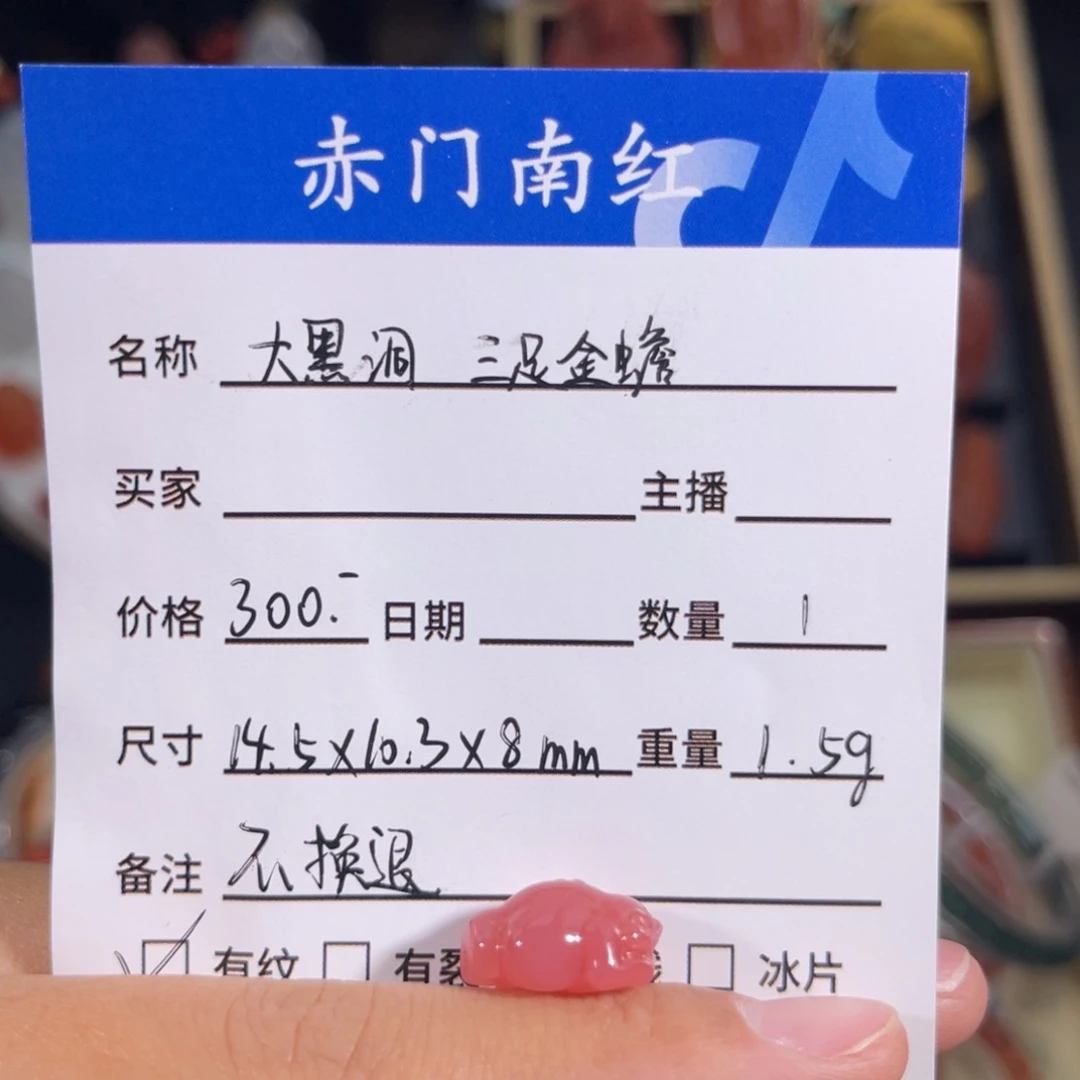 赤门南红
名称 大黑洞 三足金蟾
买家 主播
价格 300.- 日期 数量 1
尺寸 14.5X10.3X8mm 重量 1.5g
备注 不换退
有纹 有裂 冰片